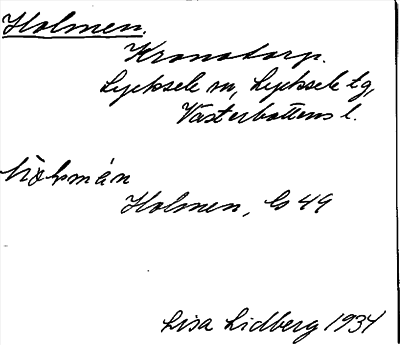 Holmen.
Kronotorp.
Lycksele sn, Lycksele tg,
Västerbottens l.
Holmen, Gs 49
Lisa Lidberg 1934